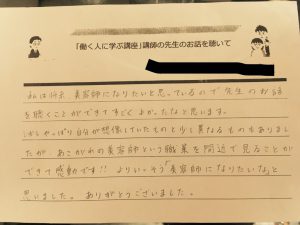 「働く人に学ぶ講座」講師の先生のお話を聴いて
私は将来、美容師になりたいと思っているので先生のお話
を聴くことができてすごくよかったなと思います。
しかしやっぱり自分が想像していたものと少し異なるものもありまし
たが、あこがれの美容師という職業を間近で見ることが
できて感動です!! よりいっそう「美容師になりたいな」と
思いました。ありがとうございました。